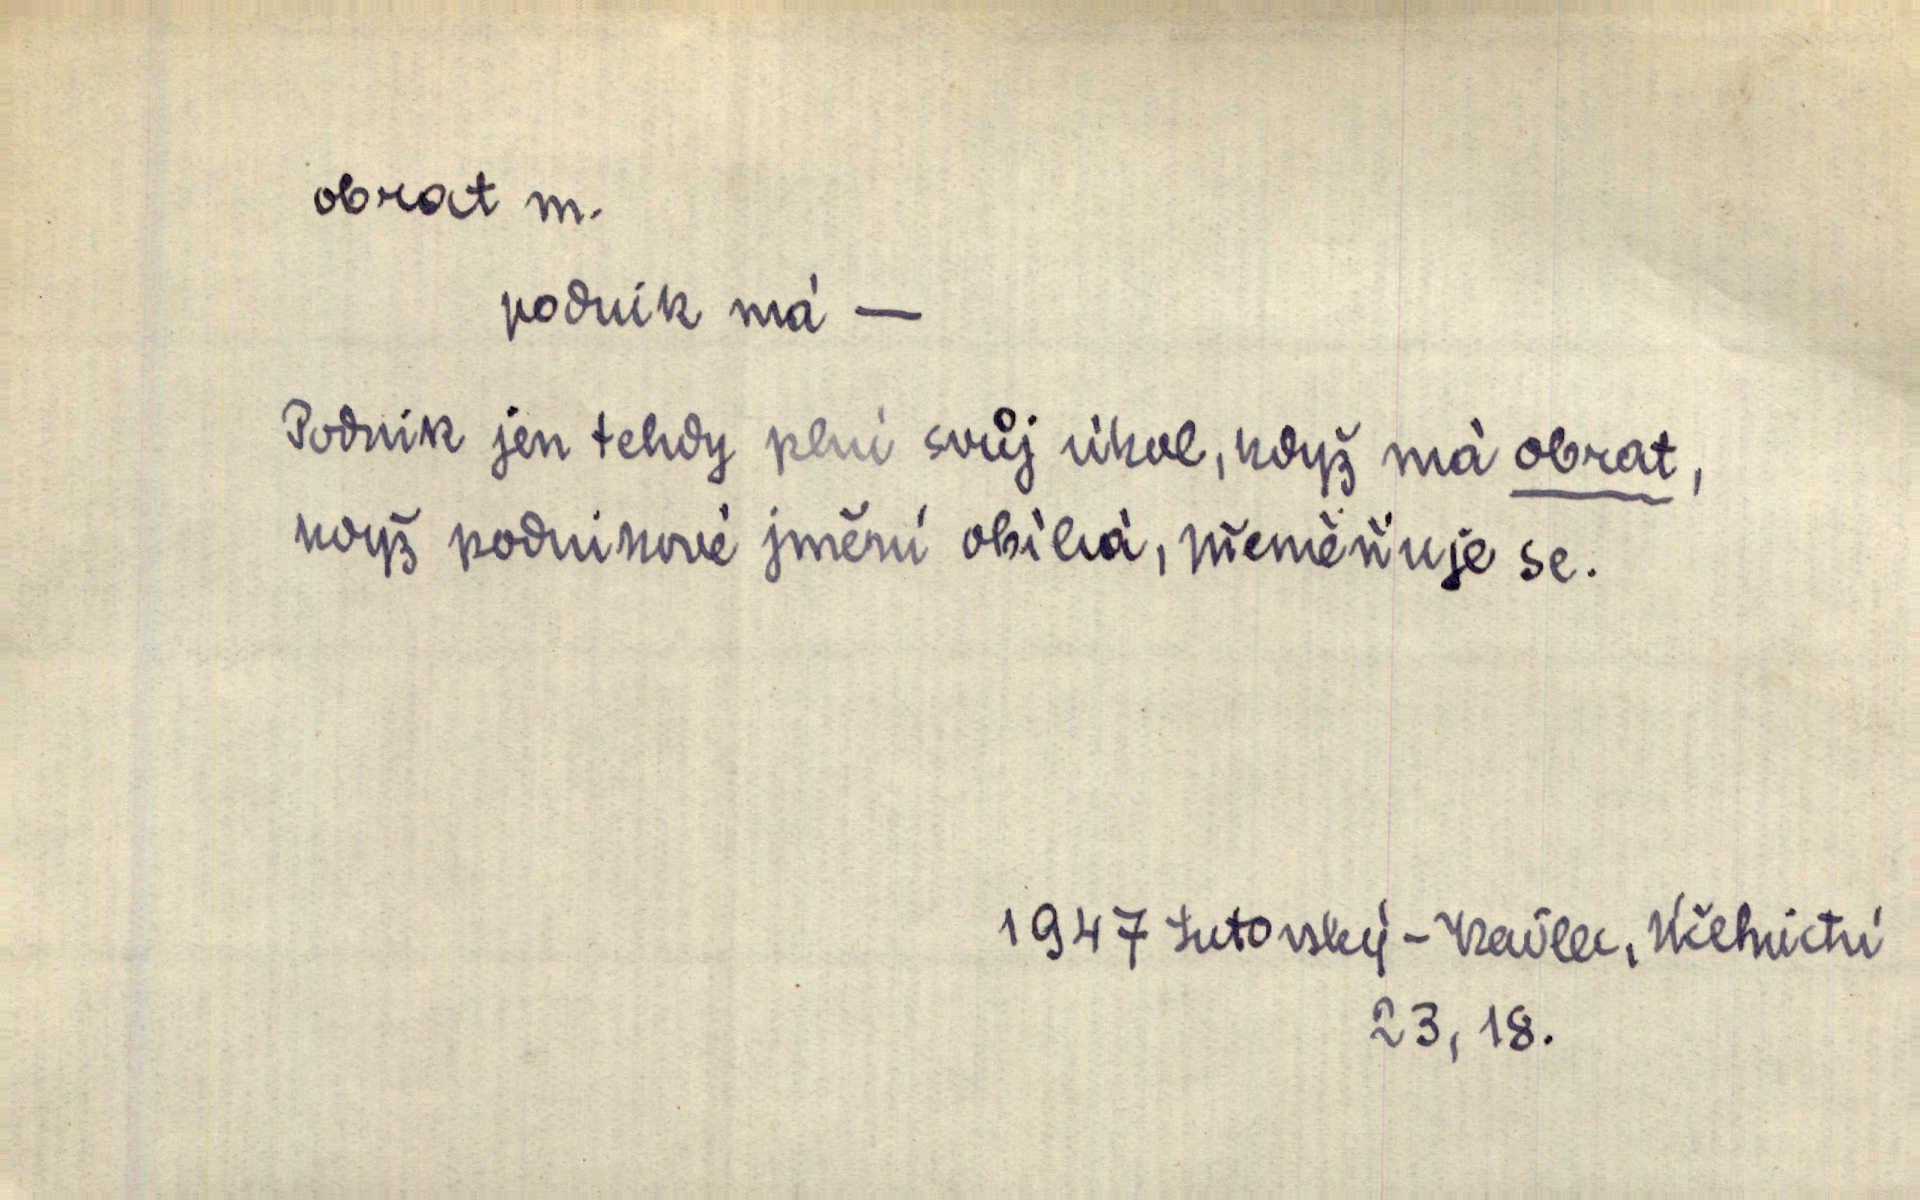 obrat m.
podnik má —
Podnik jen tehdy plní svůj úkol, když má obrat,
když podnikové jmění obíhá, přeměňuje se.
1947 Lutovský - Účetnictví
23, 18.